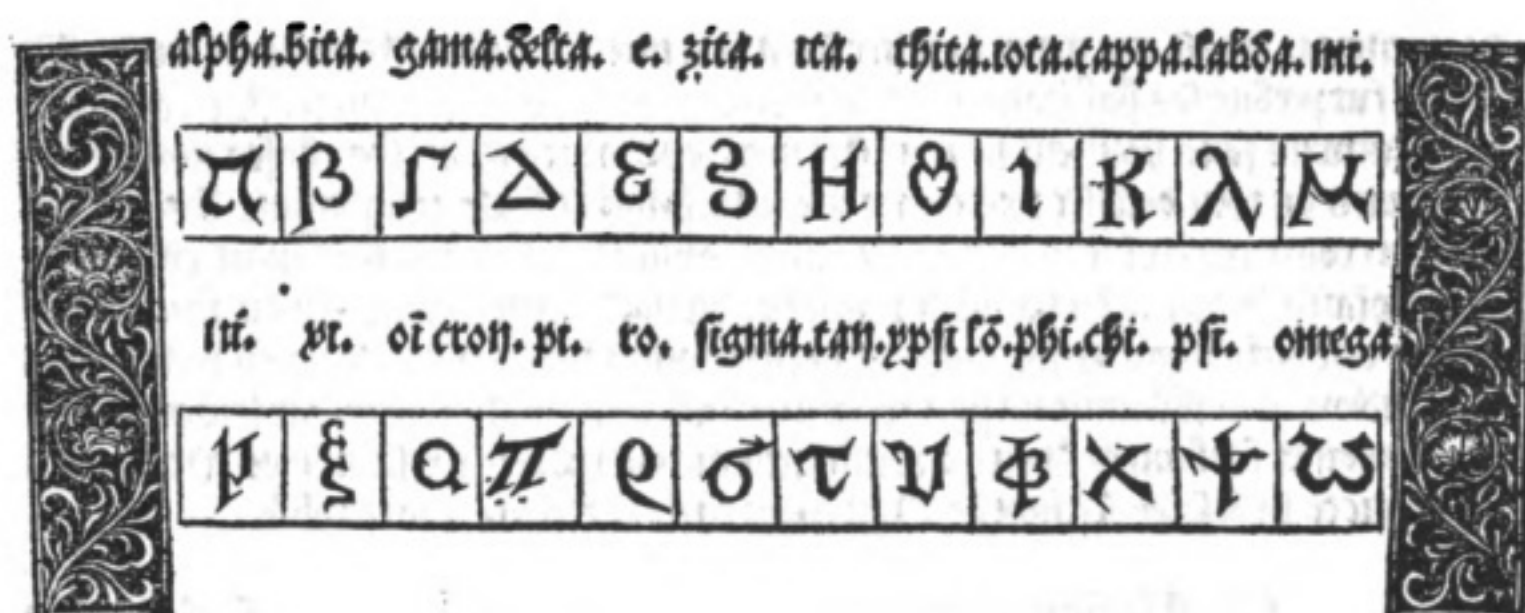 alpha.bita. gama.delta. e. zita. ita. thita.iota.cappa.labda.mi.
α β Γ Δ ε ζ H θ ι κ λ μ
ni. xi. oī cron. pi. ro. sigma.tau.ypsi lō.phi.chi. psi. omega
ν ξ ο π ρ σ τ υ φ χ ψ ω